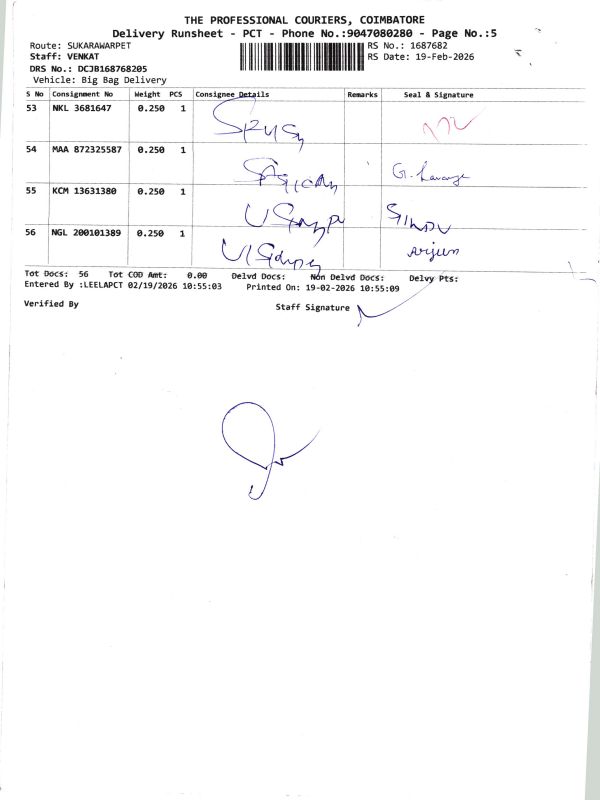 THE PROFESSIONAL COURIERS, COIMBATORE
Delivery Runsheet - PCT - Phone No.:9047080280 - Page No.:5
Route: SUKARAWARPET
RS No.: 1687682
Staff: VENKAT
RS Date: 19-Feb-2026
DRS No.: DCJB168768205
Vehicle: Big Bag Delivery
S No Consignment No Weight PCS Consignee Details Remarks Seal & Signature
53 NKL 3681647 0.250 1
54 MAA 872325587 0.250 1
55 KCM 13631380 0.250 1
56 NGL 200101389 0.250 1
Arjun
Tot Docs: 56 Tot COD Amt: 0.00 Delvd Docs: Non Delvd Docs: Delvy Pts:
Entered By :LEELAPCT 02/19/2026 10:55:03 Printed On: 19-02-2026 10:55:09
Verified By Staff Signature